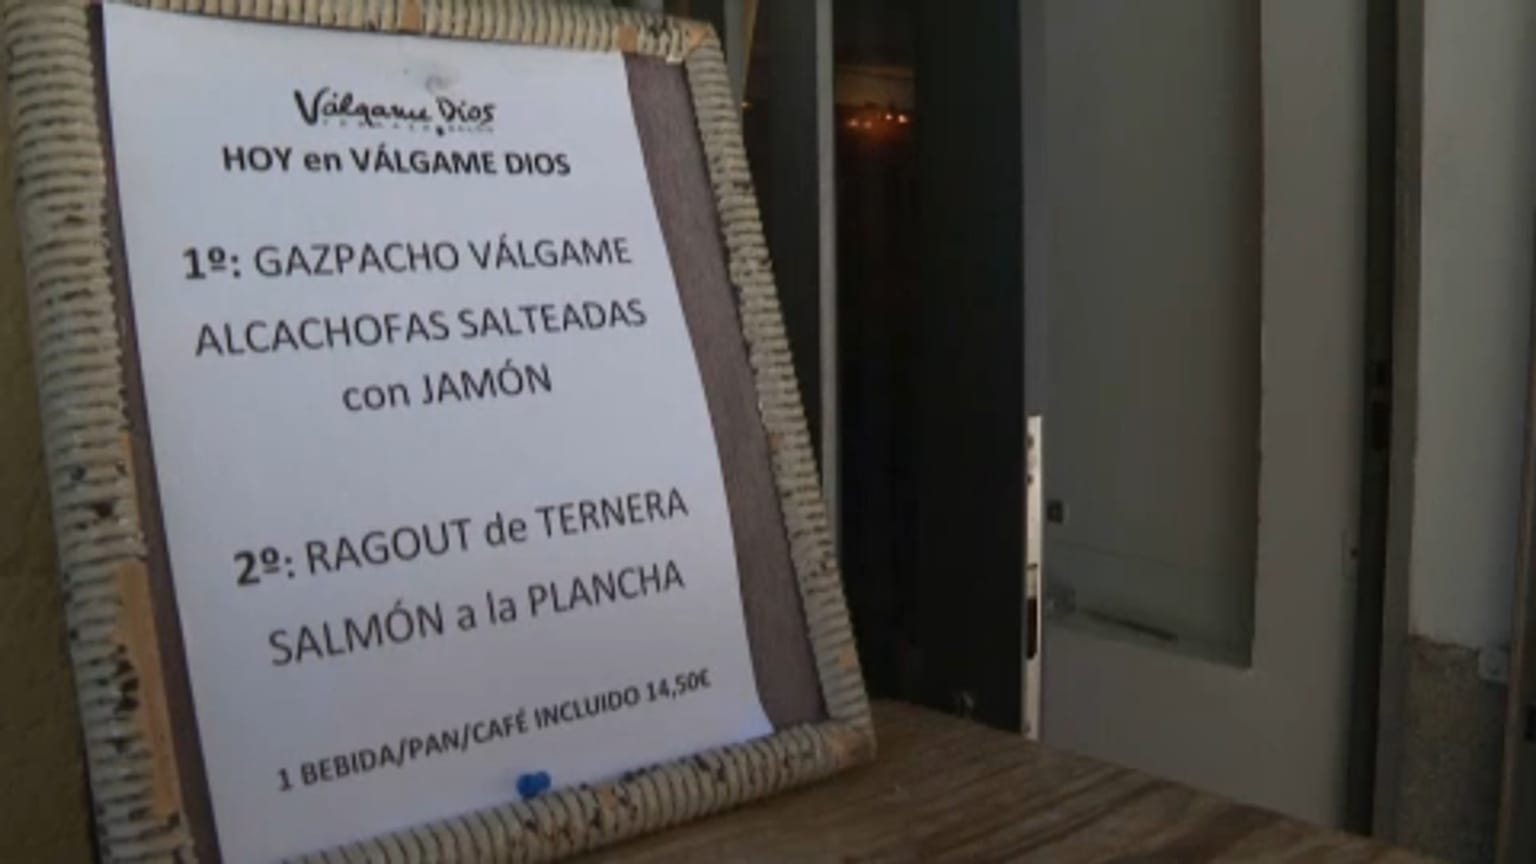 Válgame Dios
HOY en VÁLGAME DIOS
1º: GAZPACHO VÁLGAME
ALCACHOFAS SALTEADAS
con JAMÓN
2º: RAGOUT de TERNERA
SALMÓN a la PLANCHA
1 BEBIDA/PAN/CAFÉ INCLUIDO 14,50€